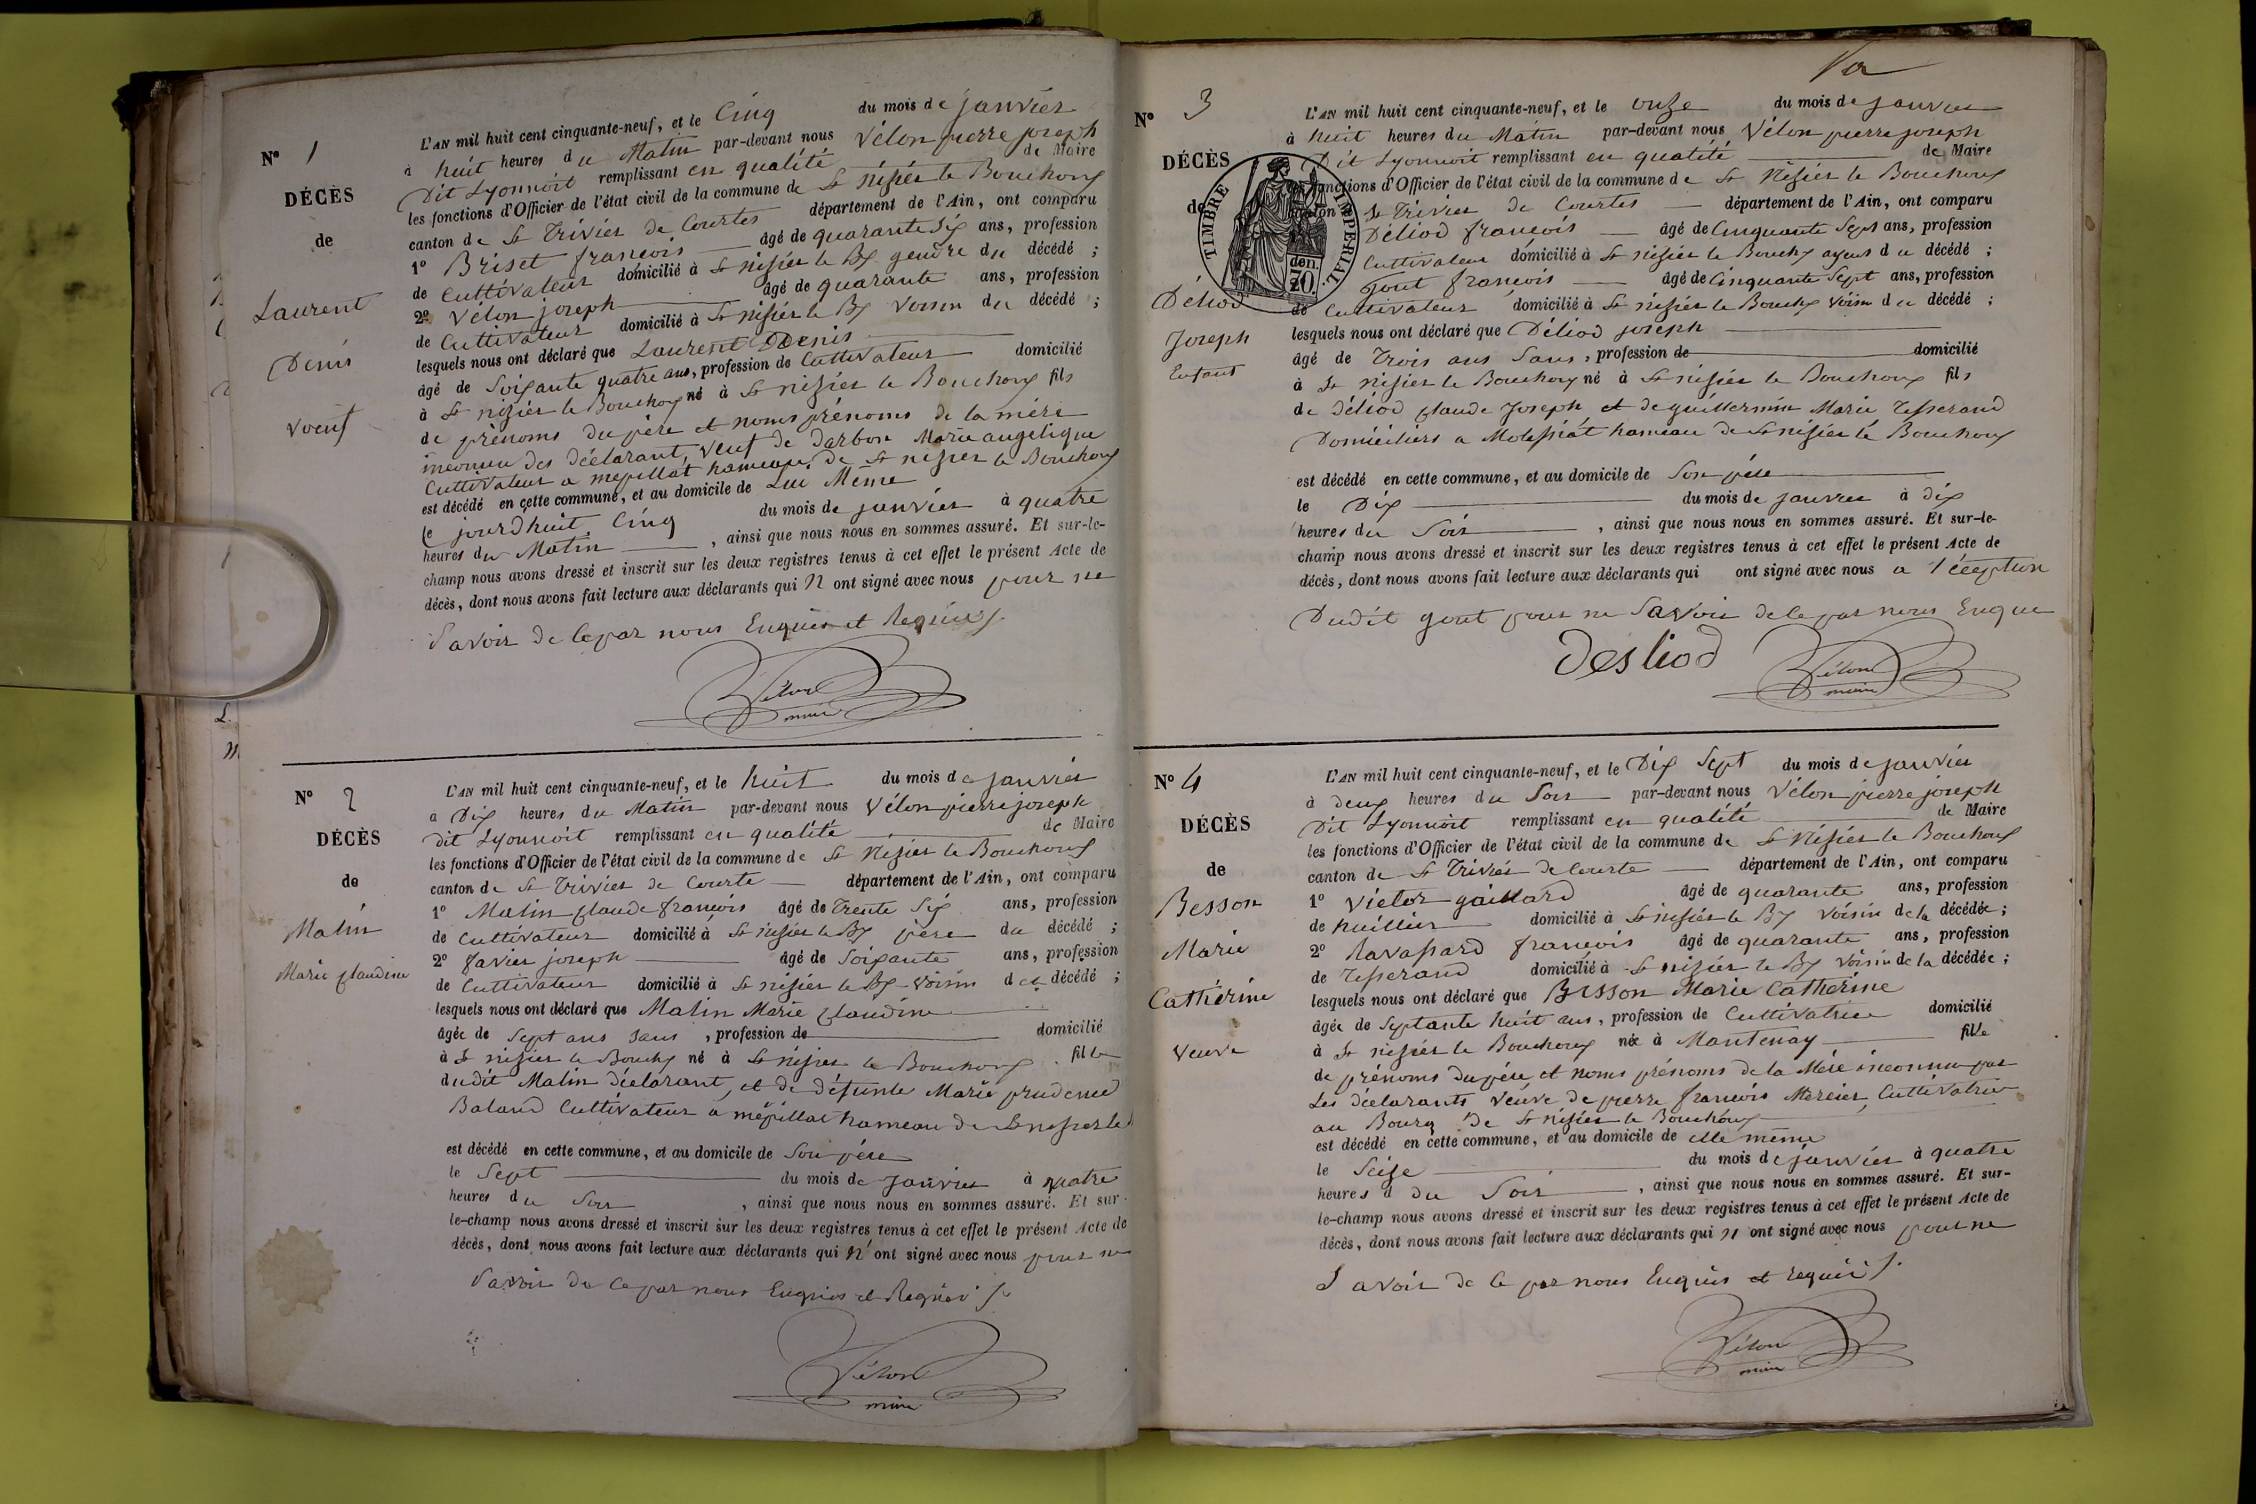 Nº 1
DÉCÈS
de
Laurent
Denis
voeuf
L'AN mil huit cent cinquante-neuf, et le Cinq du mois de janvier
à huit heures du Matin par-devant nous Vélon pierre joseph
Dit Lyonnoit remplissant en qualité de Maire
les fonctions d'Officier de l'état civil de la commune de St Nisier le Bouchoux
canton de St Trivier de Courtes département de l'Ain, ont comparu
1º Briset francois âgé de quarante six ans, profession
de Cultivateur domicilié à St nisier le Bx gendre du décédé ;
2º Vélon joseph âgé de quarante ans, profession
de Cultivateur domicilié à St nisier le Bx Voisin du décédé ;
lesquels nous ont déclaré que Laurent Denis
âgé de Soixante quatre ans, profession de Cultivateur domicilié
à St nizier le Bouchoux né à St nizier le Bouchoux fils
de prénoms du père et noms prénoms de la mére
inconnu des déclarant, veuf de Darbon Marie angelique
Cultivateur a mépillat hameau de St nizier le Bouchoux
est décédé en cette commune, et au domicile de Lui Même
le jourdhuit Cinq du mois de janvier à quatre
heures du Matin , ainsi que nous nous en sommes assuré. Et sur-le-
champ nous avons dressé et inscrit sur les deux registres tenus à cet effet le présent Acte de
décès, dont nous avons fait lecture aux déclarants qui n ont signé avec nous pour ne
Savoir de ce par nous Enquis et Requis
Vélon
maire
Nº 2
DÉCÈS
de
Malin
Marie Claudine
L'AN mil huit cent cinquante-neuf, et le huit du mois de janvier
à Dix heures du Matin par-devant nous Vélon pierre joseph
dit Lyonnoit remplissant en qualité de Maire
les fonctions d'Officier de l'état civil de la commune de St Nisier le Bouchoux
canton de St Trivier de Courte département de l'Ain, ont comparu
1º Malin Claude francois âgé de Trente Six ans, profession
de Cultivateur domicilié à St nisier le Bx père du décédé ;
2º favier joseph âgé de Soixante ans, profession
de Cultivateur domicilié à St nisier le Bx Voisin de décédé ;
lesquels nous ont déclaré que Malin Marie Claudine
âgée de Sept ans Sans , profession de domicilié
à St nisier le Bouchx né à St nisier le Bouchoux fille
dudit Malin déclarant, et de défunte Marie prudence
Baland Cultivateur a mépillat hameau de
est décédé en cette commune, et au domicile de Son père
le Sept du mois de janvier à quatre
heures du Soir , ainsi que nous nous en sommes assuré. Et sur-
le-champ nous avons dressé et inscrit sur les deux registres tenus à cet effet le présent Acte de
décès, dont nous avons fait lecture aux déclarants qui n' ont signé avec nous pour ne
Savoir de ce par nous Enquis et Requis
Vélon
maire
Nº 3
DÉCÈS
de
Déliod
Joseph
Enfant
TIMBRE IMPÉRIAL
den.
70.
L'AN mil huit cent cinquante-neuf, et le onze du mois de janvier
à huit heures du Matin par-devant nous Vélon pierre joseph
Dit Lyonnoit remplissant en qualité de Maire
les fonctions d'Officier de l'état civil de la commune de St Nisier le Bouchoux
canton de St Trivier de Courtes département de l'Ain, ont comparu
Déliod francois âgé de Cinquante Sept ans, profession
Cultivateur domicilié à St nisier le Bouchx ayeul du décédé ;
Gout francois âgé de Cinquante Sept ans, profession
de Cultivateur domicilié à St nisier le Bouchx Voisin du décédé ;
lesquels nous ont déclaré que Déliod joseph
âgé de Trois ans Sans, profession de domicilié
à St nisier le Bouchoux né à St nisier le Bouchoux fils
de Déliod Claude Joseph et de guillermin Marie Tisserand
Domiciliers a Molissiat hameau de St nisier le Bouchoux
est décédé en cette commune, et au domicile de Son pére
le Dix du mois de janvier à dix
heures du Soir , ainsi que nous nous en sommes assuré. Et sur-le-
champ nous avons dressé et inscrit sur les deux registres tenus à cet effet le présent Acte de
décès, dont nous avons fait lecture aux déclarants qui ont signé avec nous a l'éception
Dudit gout pour ne Savoir de ce par nous Enque
Desliod
Vélon
maire
Nº 4
DÉCÈS
de
Besson
Marie
Cathérine
Veuve
L'AN mil huit cent cinquante-neuf, et le Dix Sept du mois de janvier
à deux heures du Soir par-devant nous Vélon pierre joseph
Dit Lyonnoit remplissant en qualité de Maire
les fonctions d'Officier de l'état civil de la commune de St Nisier le Bouchoux
canton de St Trivier de Courte département de l'Ain, ont comparu
1º Victor gaillard âgé de quarante ans, profession
de huillier domicilié à St nisier le Bx Voisin de la décédée ;
2º Ravassard francois âgé de quarante ans, profession
de Tisserand domicilié à St nisier le Bx Voisin de la décédée ;
lesquels nous ont déclaré que Besson Marie Cathérine
âgée de Septante huit ans, profession de Cultivatrice domicilié
à St nisier le Bouchoux née à Mantenay fille
de prénoms du pére et noms prénoms de la Mére inconnu par
Les déclarants Veuve de pierre francois Mercier, Cultivatrice
au Bourg de St nisier le Bouchoux
est décédé en cette commune, et au domicile de elle même
le Seize du mois de janvier à quatre
heures d du Soir , ainsi que nous nous en sommes assuré. Et sur-
le-champ nous avons dressé et inscrit sur les deux registres tenus à cet effet le présent Acte de
décès, dont nous avons fait lecture aux déclarants qui n ont signé avec nous pour ne
Savoir de ce par nous Enquis et requis
Vélon
maire